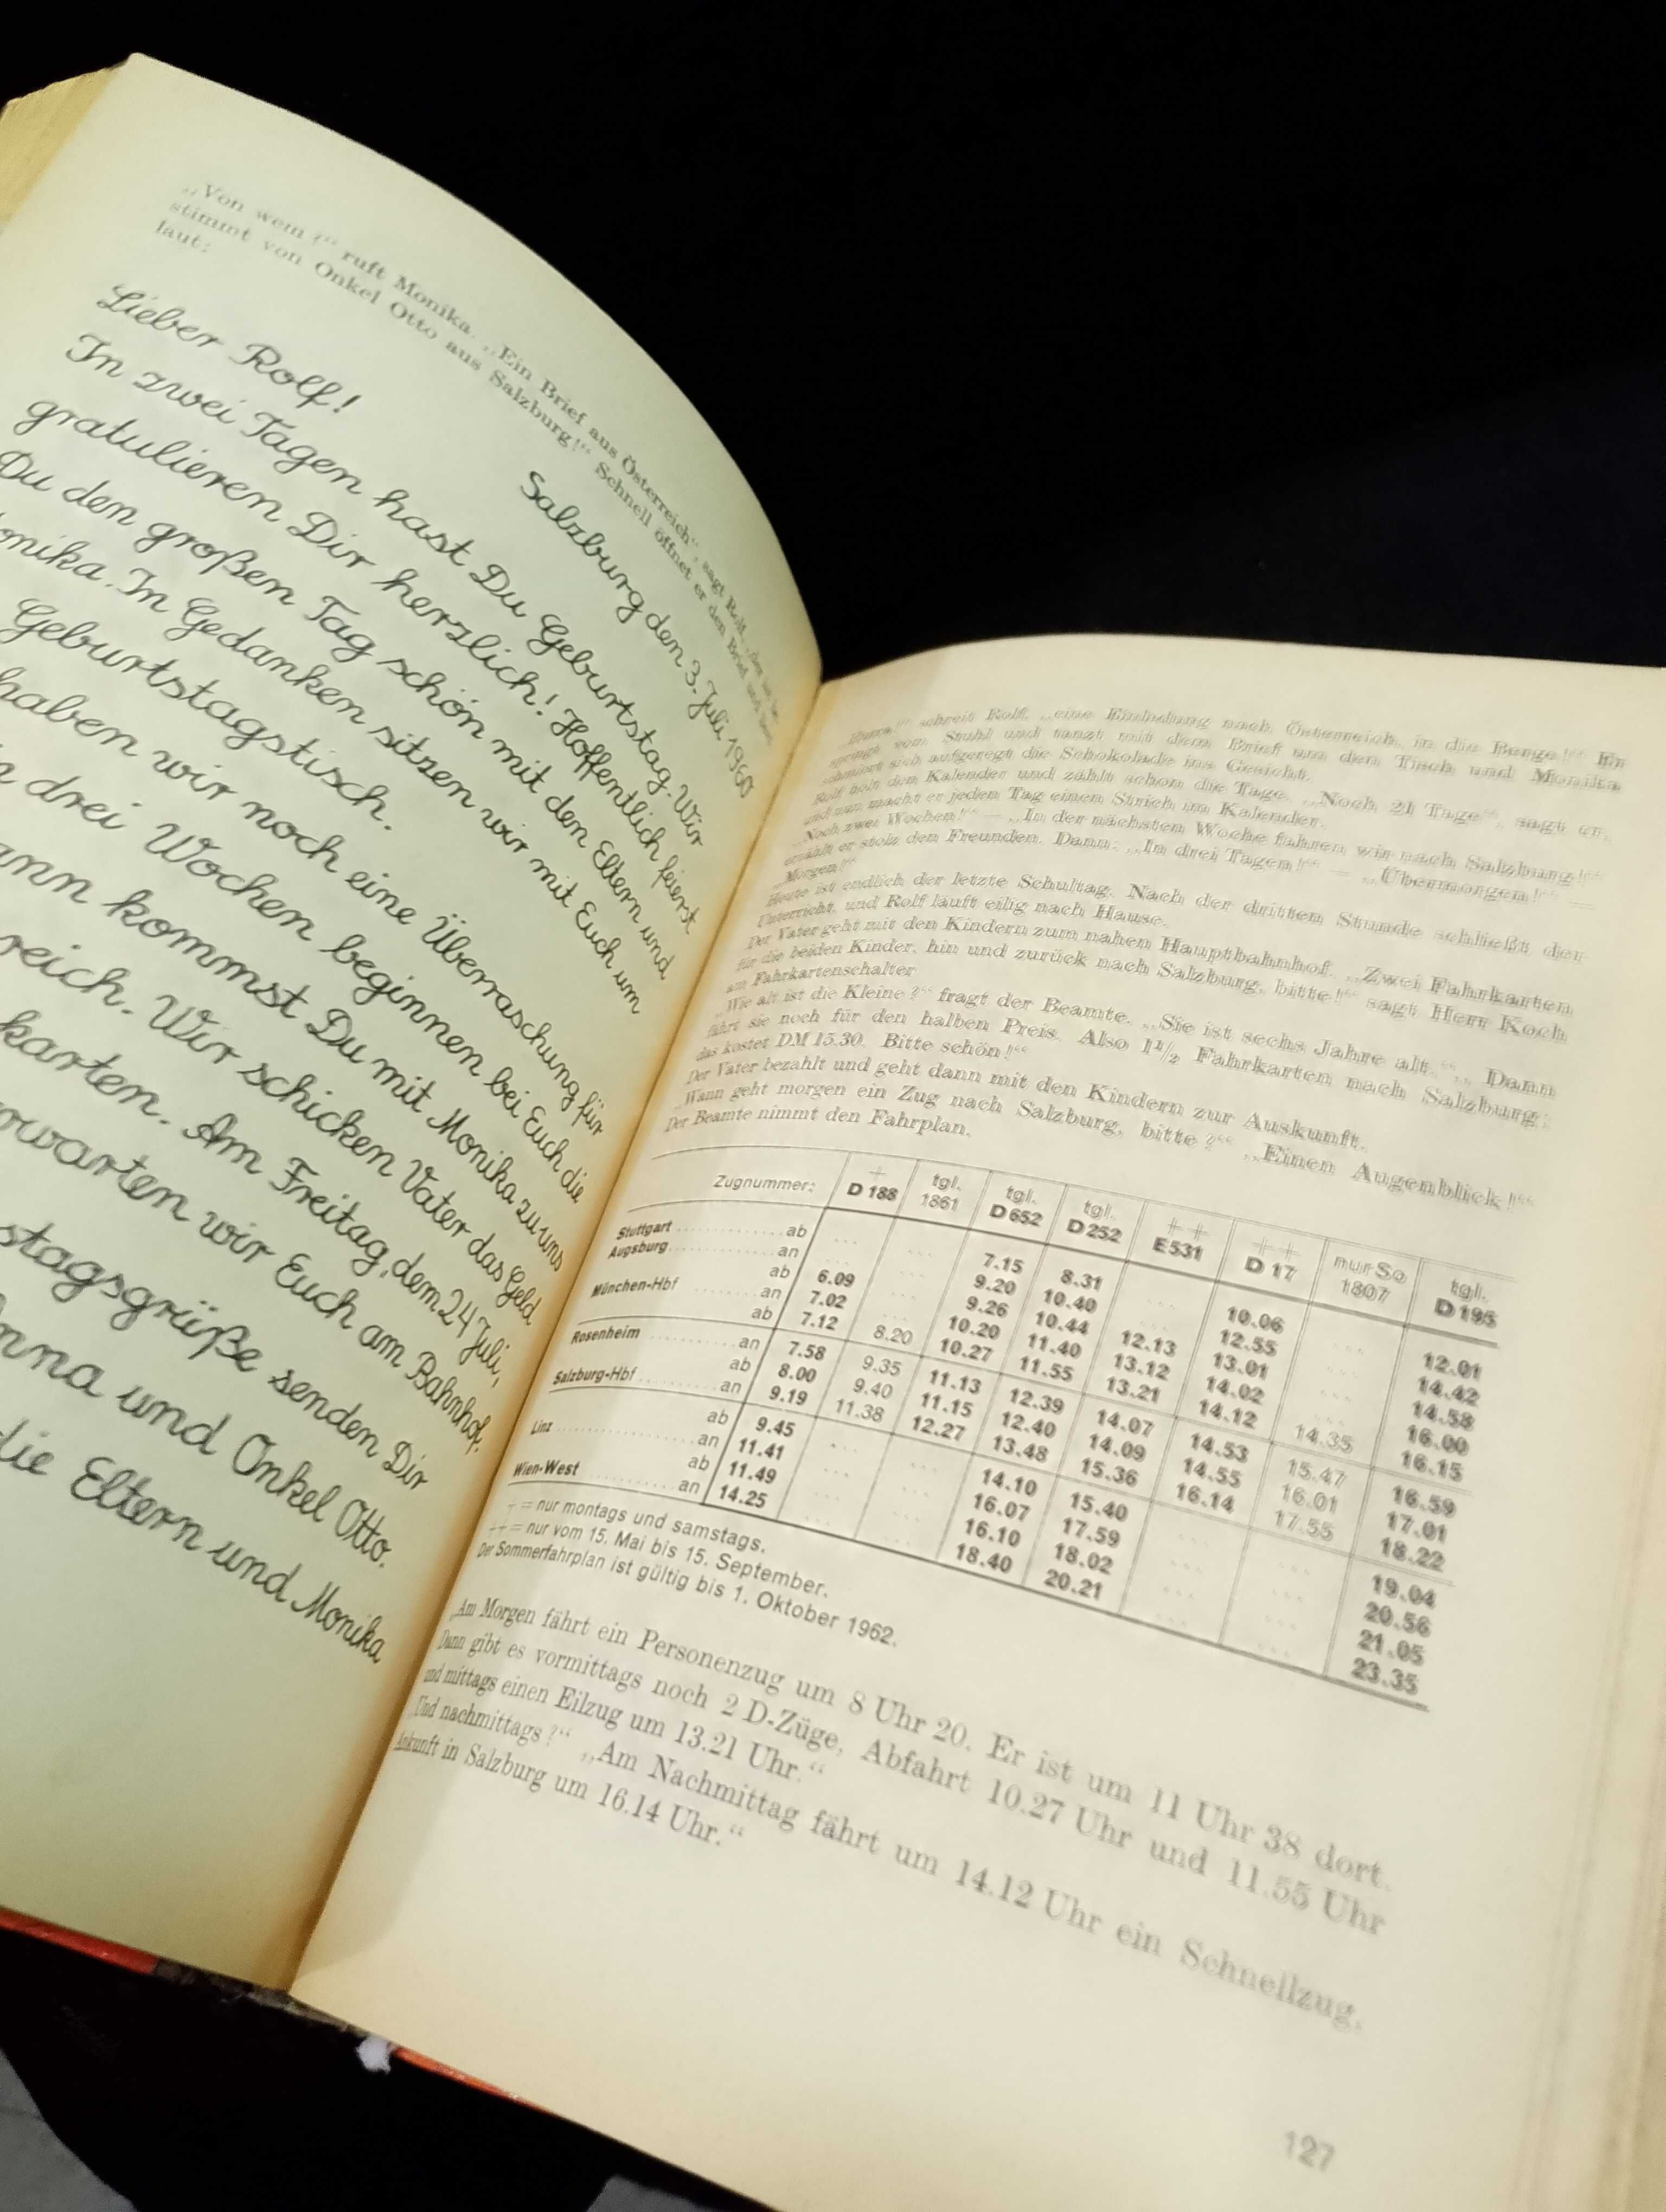 „Von wem?“ ruft Monika. „Ein Brief aus Österreich“, sagt Rolf, „der ist be-
stimmt von Onkel Otto aus Salzburg!“ Schnell öffnet er den Brief und liest
laut:
Salzburg den 3. Juli 1960
Lieber Rolf!
In zwei Tagen hast Du Geburtstag. Wir
gratulieren Dir herzlich! Hoffentlich feierst
Du den großen Tag schön mit den Eltern und
onika. In Gedanken sitzen wir mit Euch um
Geburtstagstisch.
haben wir noch eine Überraschung für
drei Wochen beginnen bei Euch die
ann kommst Du mit Monika zu uns
reich. Wir schicken Vater das Geld
karten. Am Freitag, dem 24 Juli,
rwarten wir Euch am Bahnhof.
stagsgrüße senden Dir
nna und Onkel Otto.
die Eltern und Monika
„Hurra!“ schreit Rolf, „eine Einladung nach Österreich, in die Berge!“ Er
springt vom Stuhl und tanzt mit dem Brief um den Tisch und Monika
schmiert sich aufgeregt die Schokolade ins Gesicht.
Rolf holt den Kalender und zählt schon die Tage. „Noch 21 Tage“, sagt er,
und nun macht er jeden Tag einen Strich im Kalender.
„Noch zwei Wochen!“ — „In der nächsten Woche fahren wir nach Salzburg!“
erzählt er stolz den Freunden. Dann: „In drei Tagen!“ — „Übermorgen!“ —
„Morgen!“
Heute ist endlich der letzte Schultag. Nach der dritten Stunde schließt der
Unterricht, und Rolf läuft eilig nach Hause.
Der Vater geht mit den Kindern zum nahen Hauptbahnhof. „Zwei Fahrkarten
für die beiden Kinder, hin und zurück nach Salzburg, bitte!“ sagt Herr Koch
am Fahrkartenschalter.
„Wie alt ist die Kleine?“ fragt der Beamte. „Sie ist sechs Jahre alt.“ „Dann
fährt sie noch für den halben Preis. Also 1 1/2 Fahrkarten nach Salzburg;
das kostet DM 15.30. Bitte schön!“
Der Vater bezahlt und geht dann mit den Kindern zur Auskunft.
„Wann geht morgen ein Zug nach Salzburg, bitte?“ „Einen Augenblick!“
Der Beamte nimmt den Fahrplan.
Zugnummer: + D 188 tgl. 1861 tgl. D 652 tgl. D 252 ++ E 531 ++ D 17 nur So 1807 tgl. D 195
Stuttgart ab ... ... 7.15 8.31 ... 10.06 ... 12.01
Augsburg an ... ... 9.20 10.40 ... 12.55 ... 14.42
ab 6.09 ... 9.26 10.44 12.13 13.01 ... 14.58
München-Hbf an 7.02 ... 10.20 11.40 13.12 14.02 ... 16.00
ab 7.12 8.20 10.27 11.55 13.21 14.12 14.35 16.15
Rosenheim an 7.58 9.35 11.13 12.39 14.07 14.53 15.47 16.59
ab 8.00 9.40 11.15 12.40 14.09 14.55 16.01 17.01
Salzburg-Hbf an 9.19 11.38 12.27 13.48 15.36 16.14 17.55 18.22
ab 9.45 ... ... 14.10 15.40 ... ... 19.04
Linz an 11.41 ... ... 16.07 17.59 ... ... 20.56
ab 11.49 ... ... 16.10 18.02 ... ... 21.05
Wien-West an 14.25 ... ... 18.40 20.21 ... ... 23.35
+ = nur montags und samstags.
++ = nur vom 15. Mai bis 15. September.
Der Sommerfahrplan ist gültig bis 1. Oktober 1962.
„Am Morgen fährt ein Personenzug um 8 Uhr 20. Er ist um 11 Uhr 38 dort.
Dann gibt es vormittags noch 2 D-Züge, Abfahrt 10.27 Uhr und 11.55 Uhr
und mittags einen Eilzug um 13.21 Uhr.“
„Und nachmittags?“ „Am Nachmittag fährt um 14.12 Uhr ein Schnellzug,
Ankunft in Salzburg um 16.14 Uhr.“
127